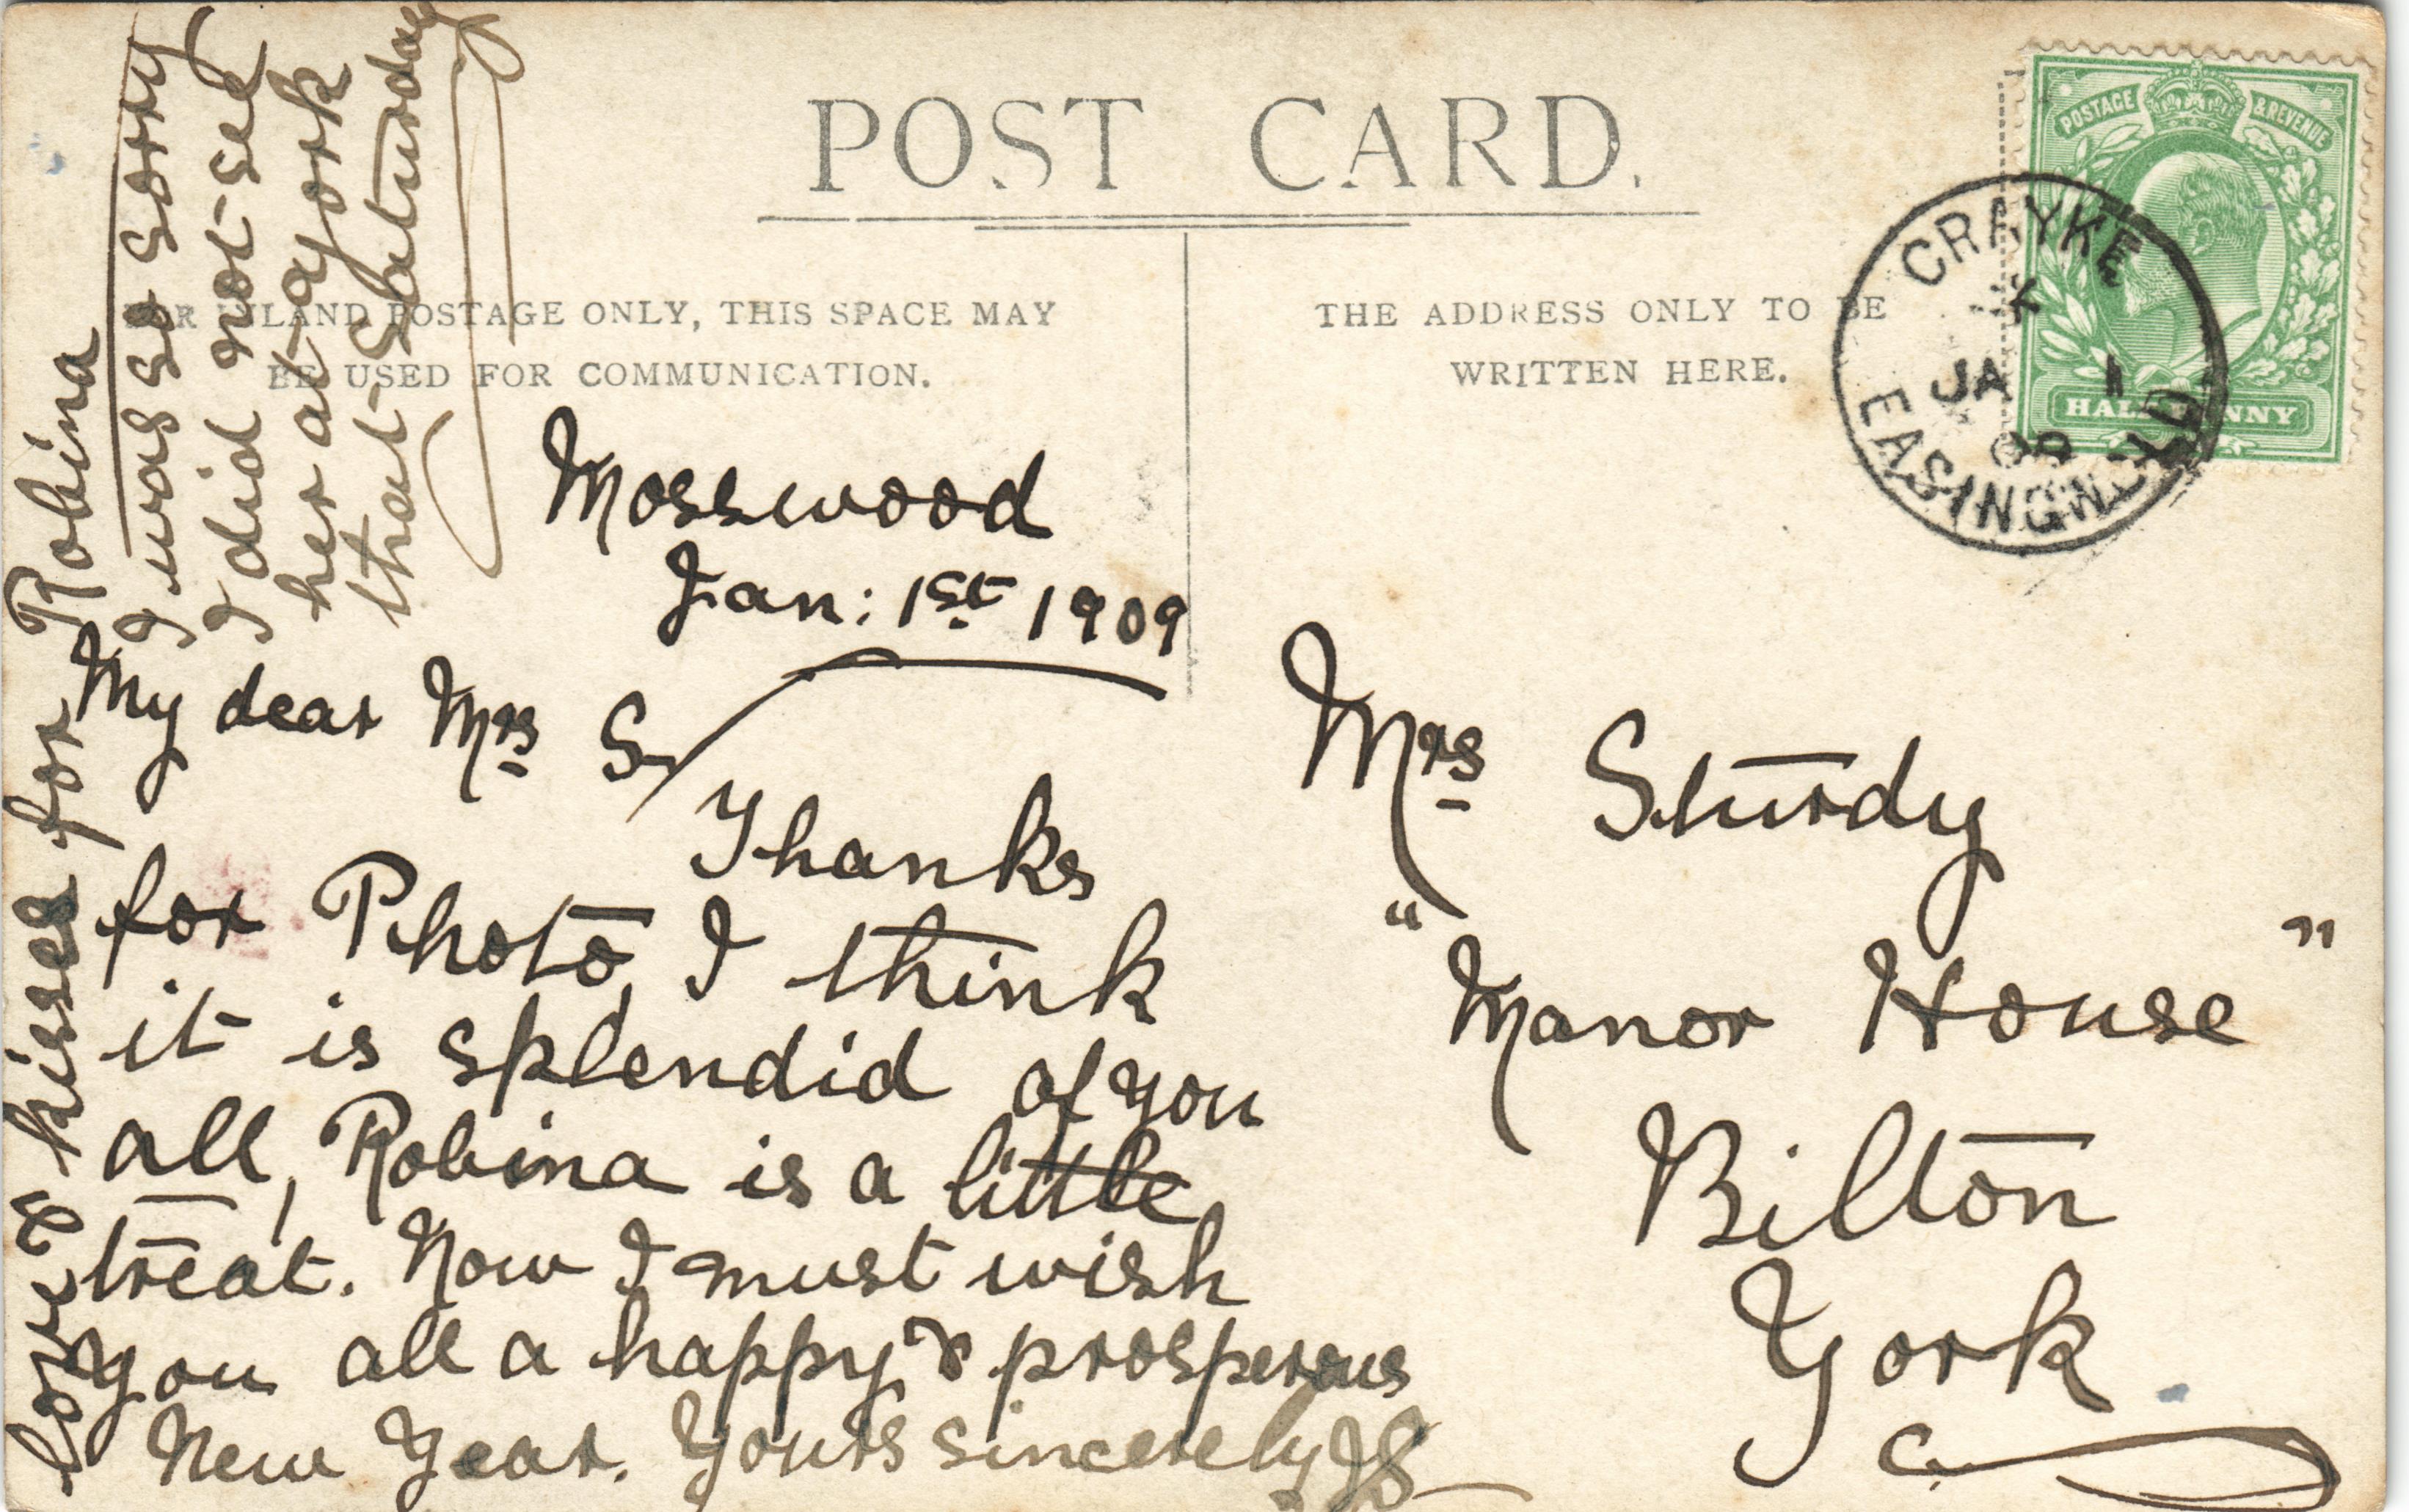 POST CARD.
FOR INLAND POSTAGE ONLY, THIS SPACE MAY
BE USED FOR COMMUNICATION.
THE ADDRESS ONLY TO BE
WRITTEN HERE.
POSTAGE & REVENUE
HALFPENNY
CRAYKE
JA 1
09
EASINGWOLD
Mosswood
Jan: 1st 1909
My dear Mrs S
Thanks
for Photo, I think
it is splendid of you
all, Robina is a little
treat. Now I must wish
you all a happy & prosperous
New Year. Yours sincerely
love & kisses for Robina
I was so sorry
I did not see
her at York
that Saturday
Mrs Sturdy
"Manor House"
Bilton
York